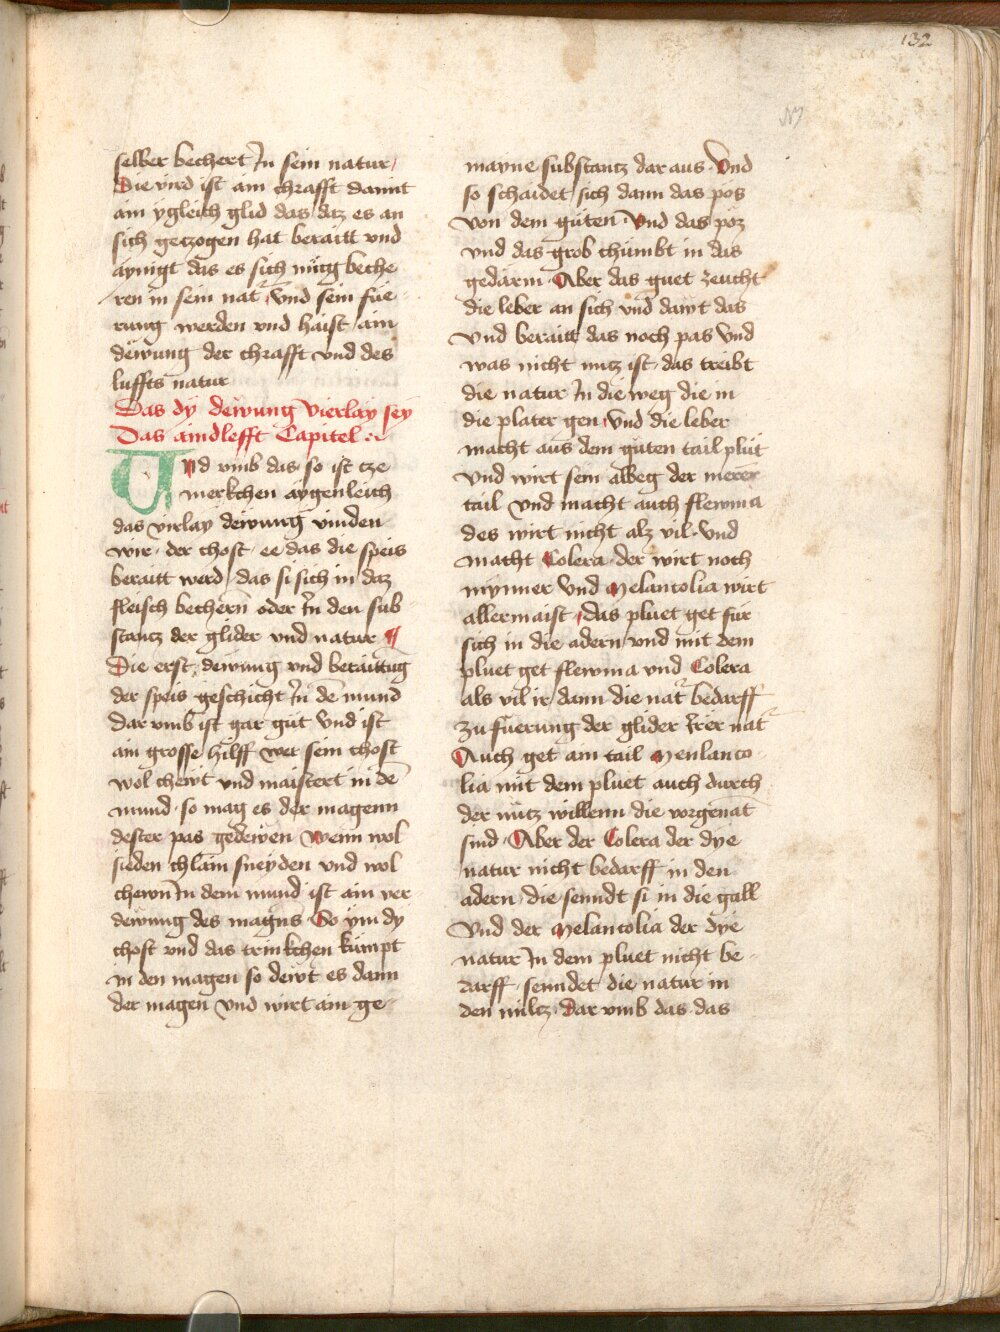 132
selber bechert Jn sein natur
Die vird ist ain chrafft damit
ain ygleich glid das daz es an
sich geczogen hat beraitt vnd
aynigt das es sich müg beche
ren in sein nat͛ Vnd sein füe
rung werden vnd haist ain
dëwung der chrafft vnd des
luffts natur
Das dy dëwung vierlay sey
Das aindlefft Capitel
Vnd vmb das so ist cze
merkchen aygenleich
das virlay dëwung vinden
wir · der chost · ee das die speis
beraitt werd das si sich in daz
fleisch bechern̄ oder Jn den sub
stancz der glider vnd natur ¶
Die erst dëwung vnd beraittüg
der speis geschicht Jn dē mund
Dar vmb ist gar güt Vnd ist
ain grosse hilff wer sein chost
wol chewt vnd maistert in dē
mund · so mag es der magenn
dester pas gedëwen Wenn wol
sieden chlain sneyden vnd wol
chewn Jn dem mund ist ain ver
dewung des magn̄s So nu dy
chost vnd das trinkchen kümpt
in den magen so dewt es dann
der magen Vnd wirt ain ge-
mayne substantz dar aus · Vnd
so schaidet sich dann das pös
von dem güten · Vnd das poz
vnd das grob chümbt in das
gedärm · Aber das guet zeucht
die leber an sich vnd däwt das
Vnd beraitt das noch pas Vnd
was nicht nucz ist · das treibt
die natur Jn die weg die in
die plater gen Vnd die leber
macht aus dem güten tail plüt
Vnd wirt sein albeg der merer
tail Vnd macht auch flewma
des wirt nicht alz vil · Vnd
macht Colera · der wirt noch
mynner Vnd Melancolia wirt
allermaist · das pluet get für
sich in die adern vnd mit dem
pluet get flewma vnd Colera
als vil ir dann die nat͛ bedarff
zu füerung der glider Jrer nat͛
Auch get ain tail Menlanco-
lia mit dem pluet auch durch
der nütz willenn die vorgenāt
sind · Aber der Colera der dye
natur nicht bedarff in den
adern · die senndt si in die gall
Vnd der Melancolia der dye
natur Jn dem pluet nicht be-
darff · senndet die natur in
den miltz · Dar vmb das das